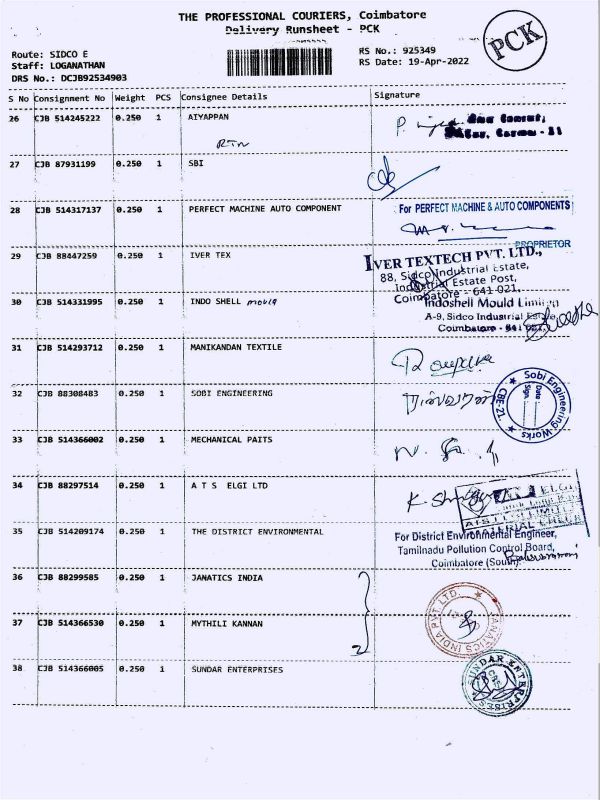 THE PROFESSIONAL COURIERS, Coimbatore
Delivery Runsheet - PCK
PCK
Route: SIDCO E
Staff: LOGANATHAN
DRS No.: DCJB92534903
RS No.: 925349
RS Date: 19-Apr-2022
S No Consignment No Weight PCS Consignee Details Signature
26 CJB 514245222 0.250 1 AIYAPPAN
27 CJB 87931199 0.250 1 SBI
28 CJB 514317137 0.250 1 PERFECT MACHINE AUTO COMPONENT
For PERFECT MACHINE & AUTO COMPONENTS
PROPRIETOR
29 CJB 88447259 0.250 1 IVER TEX
IVER TEXTECH PVT. LTD.,
88, Sidco Industrial Estate,
Industrial Estate Post,
Coimbatore - 641 021.
30 CJB 514331995 0.250 1 INDO SHELL mould
Indoshell Mould Limited
A-9, Sidco Industrial Estate,
Coimbatore - 641 021.
31 CJB 514293712 0.250 1 MANIKANDAN TEXTILE
32 CJB 88308483 0.250 1 SOBI ENGINEERING
Sobi Engineering Works
CBE-21.
Date
Sign.
33 CJB 514366002 0.250 1 MECHANICAL PAITS
34 CJB 88297514 0.250 1 A T S ELGI LTD
35 CJB 514209174 0.250 1 THE DISTRICT ENVIRONMENTAL
For District Environmental Engineer,
Tamilnadu Pollution Control Board,
Coimbatore (South).
36 CJB 88299585 0.250 1 JANATICS INDIA
JANATICS INDIA PVT LTD.
37 CJB 514366530 0.250 1 MYTHILI KANNAN
38 CJB 514366005 0.250 1 SUNDAR ENTERPRISES
SUNDAR ENTERPRISES